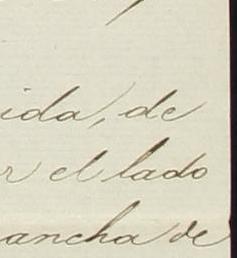 ida, de
r el lado
ancha de